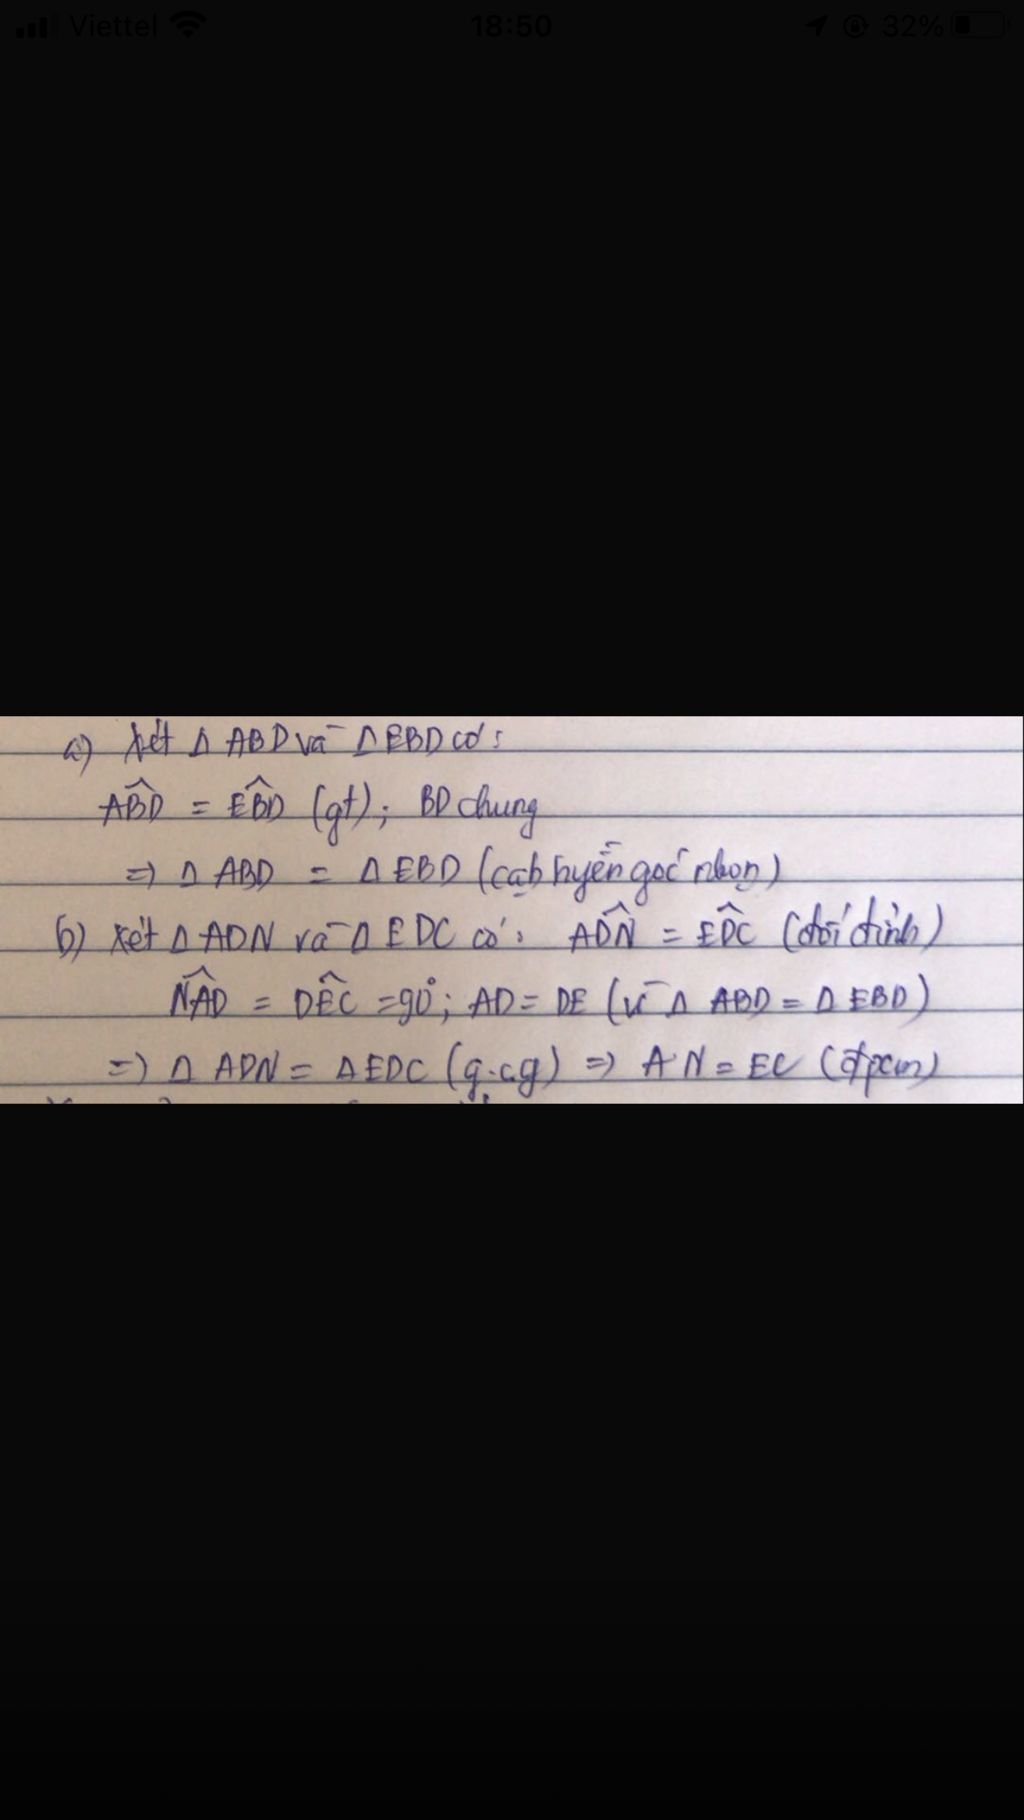 Viettel 18:50 32%
a) Xét Δ ABD và Δ EBD có:
ABD̂ = EBD̂ (gt); BD chung
=> Δ ABD = Δ EBD (cạh huyền góc nhọn)
b) Xét Δ ADN và Δ EDC có: ADN̂ = EDĈ (đối đỉnh)
NAD̂ = DEĈ = 90°; AD = DE (vì Δ ABD = Δ EBD)
=> Δ ADN = Δ EDC (g.c.g) => AN = EC (đpcm)